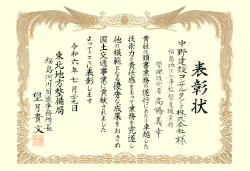 表彰状
中野建設コンサルタント株式会社 様
管理技術者 高橋義幸
貴社は頭書業務の遂行にあたり卓越した
技術力と責任感をもって業務を完遂し
他の模範となる優秀な成果をおさめ
国土交通事業に貢献されました
よってここに表彰します
令和六年七月二十九日
東北地方整備局
福島河川国道事務所長
望月貴文